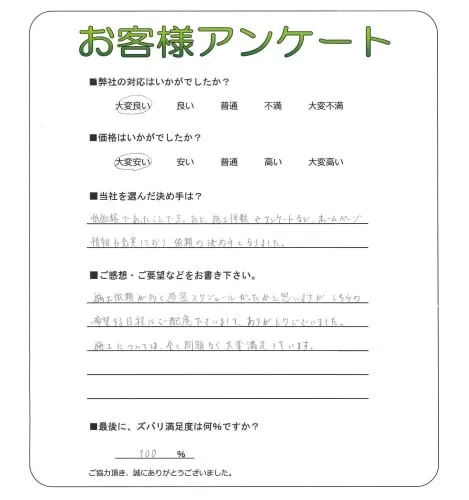 お客様アンケート
■弊社の対応はいかがでしたか？
大変良い 良い 普通 不満 大変不満
■価格はいかがでしたか？
大変安い 安い 普通 高い 大変高い
■当社を選んだ決め手は？
低価格であったことです。あと、施工件数やアンケートなど、ホームページ
情報も充実しており、依頼の決め手となりました。
■ご感想・ご要望などをお書き下さい。
施工依頼が多く過密スケジュールだったかと思いますが、こちらの
希望する日程にご配慮下さいまして、ありがとうございました。
施工については、全く問題なく大変満足しています。
■最後に、ズバリ満足度は何％ですか？
100 ％
ご協力頂き、誠にありがとうございました。